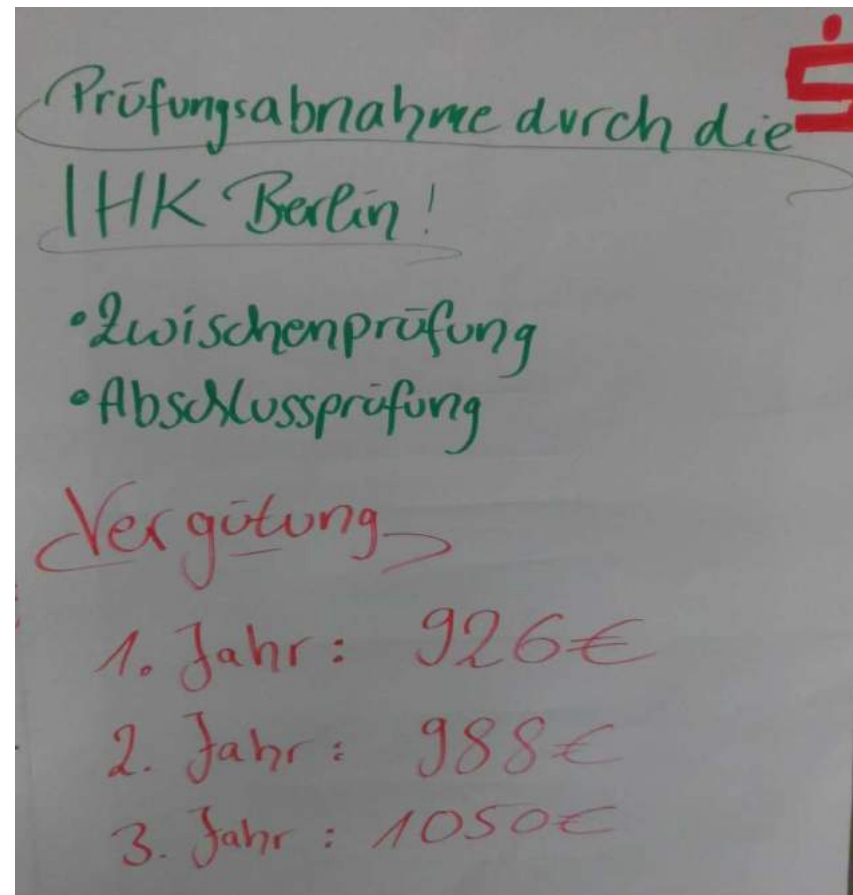 Prüfungsabnahme durch die
IHK Berlin!
• Zwischenprüfung
• Abschlussprüfung
Vergütung
1. Jahr: 926€
2. Jahr: 988€
3. Jahr: 1050€